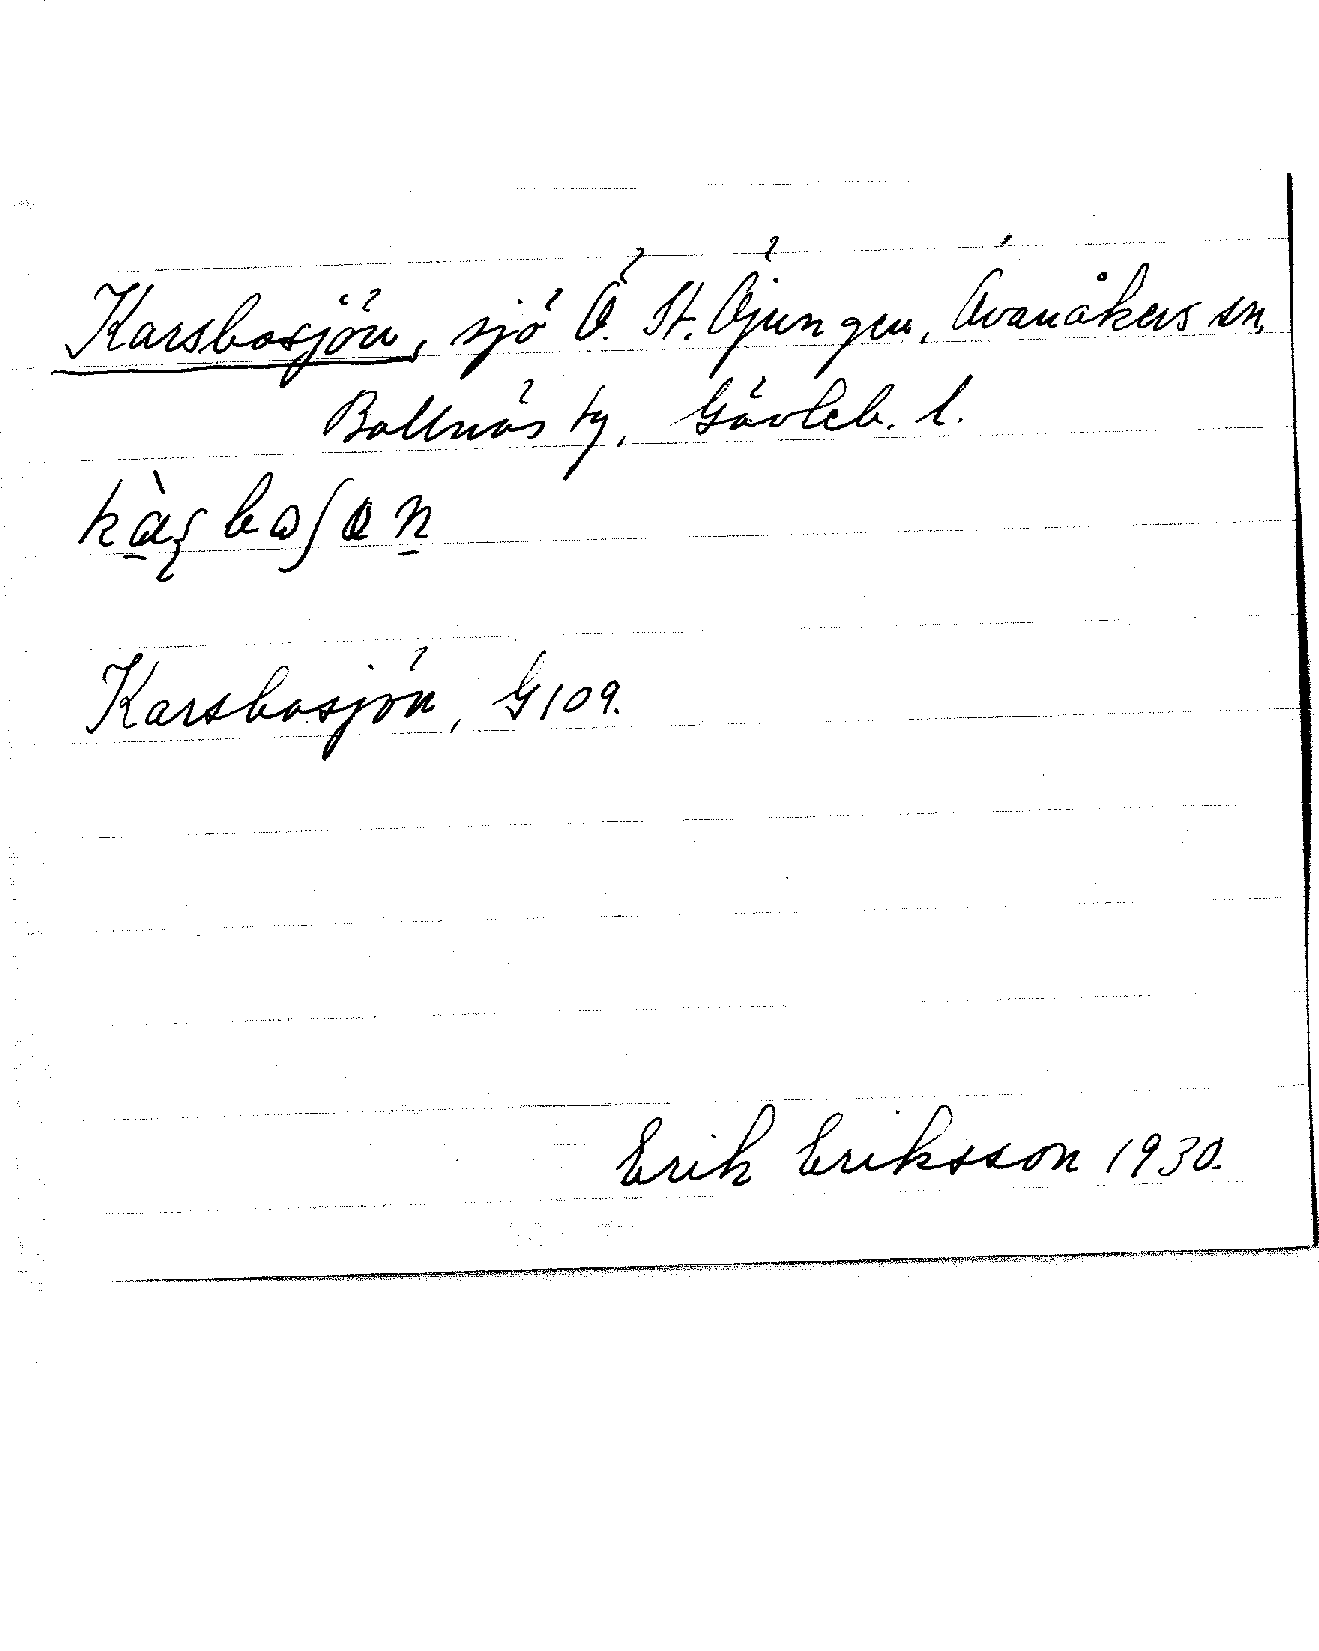 Karsbosjön, sjö Ö. St. Öjungen, Ovanåkers sn,
Bollnäs tg, Gävleb. l.
Karsbosjön, G109.
Erik Eriksson 1930.